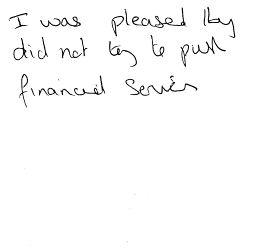 I was pleased they
did not try to push
financial services